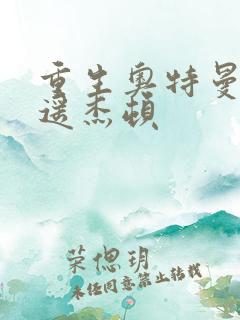 重生奥特曼
逶杰顿
荣偲玥
未经同意禁止转载